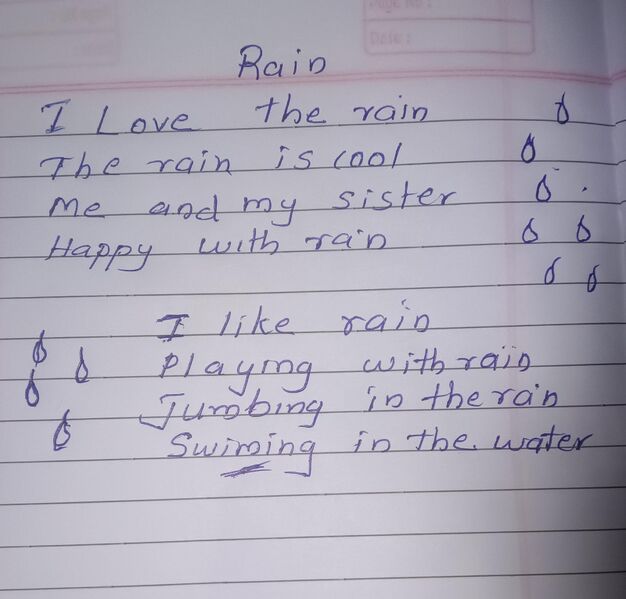 Page No:
Date:
Rain
I Love the rain
The rain is cool
Me and my sister
Happy with rain
I like rain
Playing with rain
Jumbing in the rain
Swiming in the water